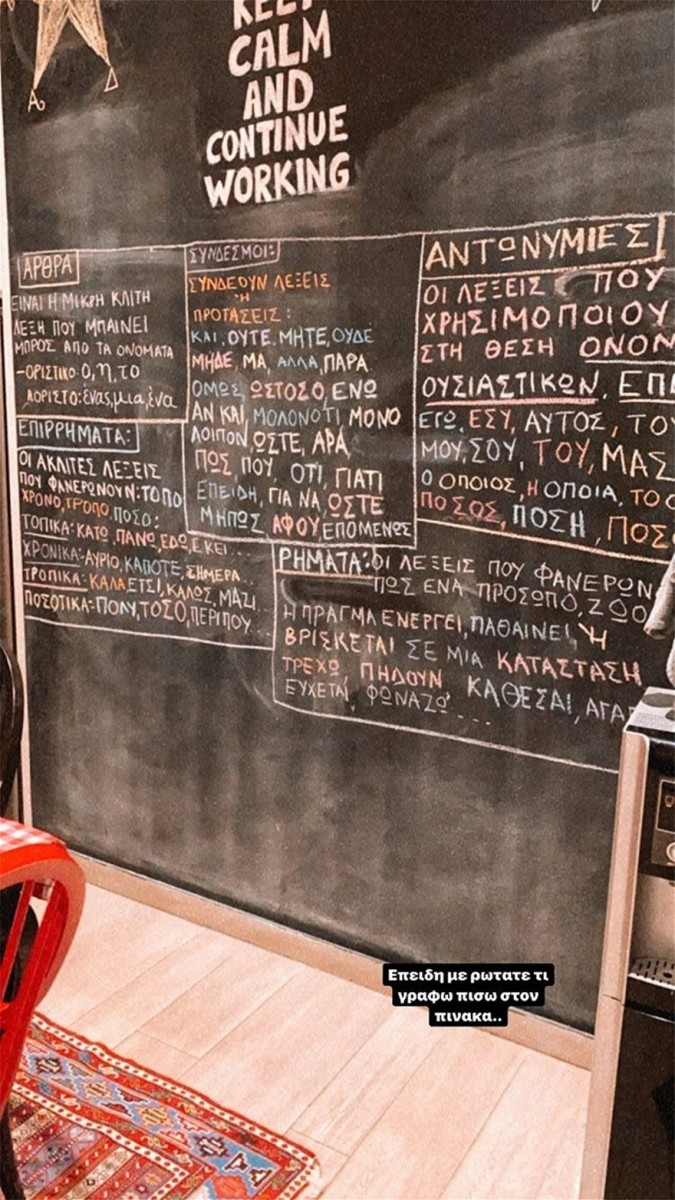 KEEP
CALM
AND
CONTINUE
WORKING
ΑΡΘΡΑ
ΕΙΝΑΙ Η ΜΙΚΡΗ ΚΛΙΤΗ
ΛΕΞΗ ΠΟΥ ΜΠΑΙΝΕΙ
ΜΠΡΟΣ ΑΠΟ ΤΑ ΟΝΟΜΑΤΑ
-ΟΡΙΣΤΙΚΟ: Ο, η, το
ΑΟΡΙΣΤΟ: ένας, μια, ένα
ΕΠΙΡΡΗΜΑΤΑ:
ΟΙ ΑΚΛΙΤΕΣ ΛΕΞΕΙΣ
ΠΟΥ ΦΑΝΕΡΩΝΟΥΝ: ΤΟΠΟ
ΧΡΟΝΟ, ΤΡΟΠΟ, ΠΟΣΟ:
ΤΟΠΙΚΑ: ΚΑΤΩ, ΠΑΝΩ, ΕΔΩ, ΕΚΕΙ...
ΧΡΟΝΙΚΑ: ΑΥΡΙΟ, ΚΑΠΟΤΕ, ΣΗΜΕΡΑ..
ΤΡΟΠΙΚΑ: ΚΑΛΑ, ΕΤΣΙ, ΚΑΛΩΣ, ΜΑΖΙ..
ΠΟΣΟΤΙΚΑ: ΠΟΛΥ, ΤΟΣΟ, ΠΕΡΙΠΟΥ...
ΣΥΝΔΕΣΜΟΙ:
ΣΥΝΔΕΟΥΝ ΛΕΞΕΙΣ
Ή
ΠΡΟΤΑΣΕΙΣ:
ΚΑΙ, ΟΥΤΕ, ΜΗΤΕ, ΟΥΔΕ
ΜΗΔΕ, ΜΑ, ΑΛΛΑ, ΠΑΡΑ
ΟΜΩΣ, ΩΣΤΟΣΟ, ΕΝΩ
ΑΝ ΚΑΙ, ΜΟΛΟΝΟΤΙ, ΜΟΝΟ
ΛΟΙΠΟΝ, ΩΣΤΕ, ΑΡΑ,
ΠΩΣ ΠΟΥ, ΟΤΙ, ΓΙΑΤΙ
ΕΠΕΙΔΗ, ΓΙΑ ΝΑ, ΩΣΤΕ
ΜΗΠΩΣ ΑΦΟΥ, ΕΠΟΜΕΝΩΣ
ΑΝΤΩΝΥΜΙΕΣ
ΟΙ ΛΕΞΕΙΣ ΠΟΥ
ΧΡΗΣΙΜΟΠΟΙΟΥ
ΣΤΗ ΘΕΣΗ ΟΝΟΜ
ΟΥΣΙΑΣΤΙΚΩΝ, ΕΠΙ
ΕΓΩ, ΕΣΥ, ΑΥΤΟΣ, ΤΟΥ
ΜΟΥ, ΣΟΥ, ΤΟΥ, ΜΑΣ
Ο ΟΠΟΙΟΣ, Η ΟΠΟΙΑ, ΤΟ Ο
ΠΟΣΟΣ, ΠΟΣΗ, ΠΟΣΟ
ΡΗΜΑΤΑ: ΟΙ ΛΕΞΕΙΣ ΠΟΥ ΦΑΝΕΡΩΝ
ΠΩΣ ΕΝΑ ΠΡΟΣΩΠΟ, ΖΩΟ
Η ΠΡΑΓΜΑ ΕΝΕΡΓΕΙ, ΠΑΘΑΙΝΕΙ, Ή
ΒΡΙΣΚΕΤΑΙ ΣΕ ΜΙΑ ΚΑΤΑΣΤΑΣΗ
ΤΡΕΧΩ ΠΗΔΟΥΝ ΚΑΘΕΣΑΙ, ΑΓΑΠ
ΕΥΧΕΤΑΙ, ΦΩΝΑΖΩ....
Επειδη με ρωτατε τι
γραφω πισω στον
πινακα..